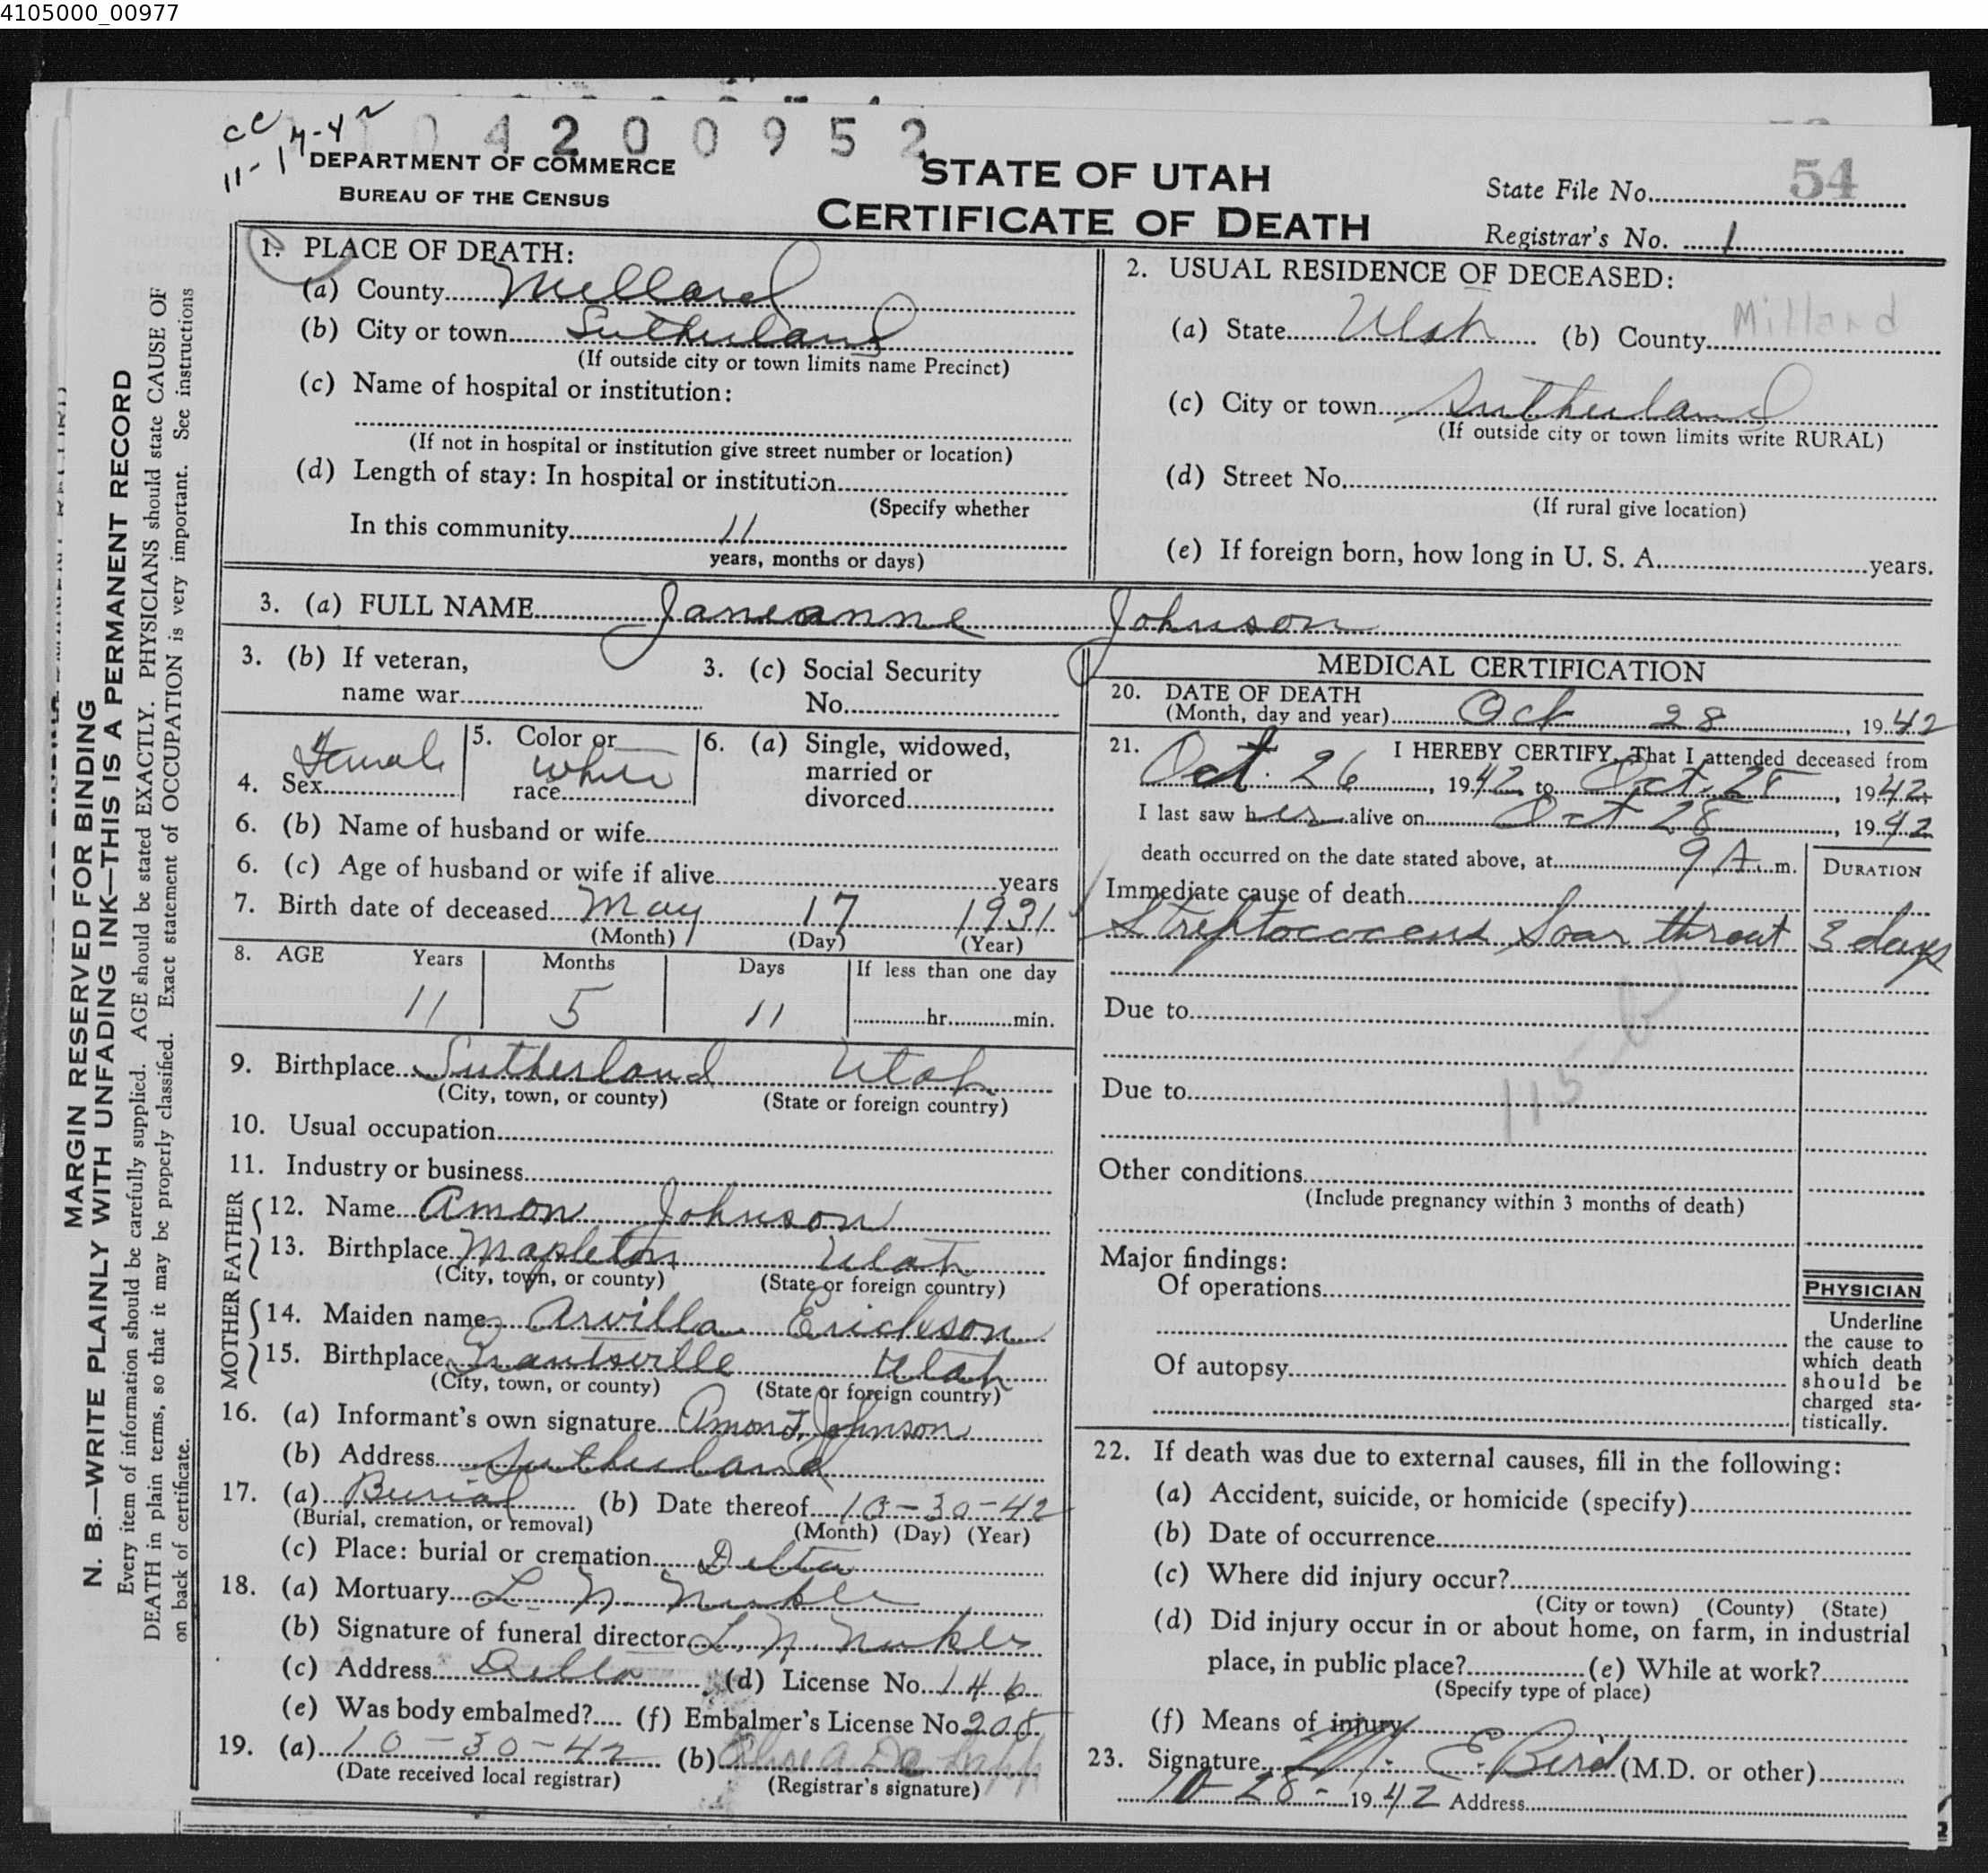 4105000_00977
cc
11-17-42
104200952
DEPARTMENT OF COMMERCE
BUREAU OF THE CENSUS
STATE OF UTAH
CERTIFICATE OF DEATH
State File No. 54
Registrar's No. 1
MARGIN RESERVED FOR BINDING
N. B.—WRITE PLAINLY WITH UNFADING INK—THIS IS A PERMANENT RECORD
Every item of information should be carefully supplied. AGE should be stated EXACTLY. PHYSICIANS should state CAUSE OF
DEATH in plain terms, so that it may be properly classified. Exact statement of OCCUPATION is very important. See instructions
on back of certificate.
1. PLACE OF DEATH:
(a) County Millard
(b) City or town Sutherland
(If outside city or town limits name Precinct)
(c) Name of hospital or institution:
(If not in hospital or institution give street number or location)
(d) Length of stay: In hospital or institution
(Specify whether
In this community 11
years, months or days)
2. USUAL RESIDENCE OF DECEASED:
(a) State Utah (b) County Millard
(c) City or town Sutherland
(If outside city or town limits write RURAL)
(d) Street No.
(If rural give location)
(e) If foreign born, how long in U. S. A. years.
3. (a) FULL NAME Janeanne Johnson
3. (b) If veteran,
name war
3. (c) Social Security
No.
4. Sex Female
5. Color or
race White
6. (a) Single, widowed,
married or
divorced
6. (b) Name of husband or wife
6. (c) Age of husband or wife if alive years
7. Birth date of deceased May 17 1931
(Month) (Day) (Year)
8. AGE Years Months Days If less than one day
11 5 11 hr. min.
9. Birthplace Sutherland Utah
(City, town, or county) (State or foreign country)
10. Usual occupation
11. Industry or business
FATHER
12. Name Amon Johnson
13. Birthplace Mapleton Utah
(City, town, or county) (State or foreign country)
MOTHER
14. Maiden name Arvilla Erickson
15. Birthplace Grantsville Utah
(City, town, or county) (State or foreign country)
16. (a) Informant's own signature Amon J. Johnson
(b) Address Sutherland
17. (a) Burial (b) Date thereof 10-30-42
(Burial, cremation, or removal) (Month) (Day) (Year)
(c) Place: burial or cremation Delta
18. (a) Mortuary L. N.
(b) Signature of funeral director L. N.
(c) Address Delta (d) License No. 146
(e) Was body embalmed? (f) Embalmer's License No. 205
19. (a) 10-30-42 (b)
(Date received local registrar) (Registrar's signature)
MEDICAL CERTIFICATION
20. DATE OF DEATH
(Month, day and year) Oct 28, 1942
21. I HEREBY CERTIFY, That I attended deceased from
Oct. 26, 1942 to Oct. 28, 1942
I last saw her alive on Oct 28, 1942
death occurred on the date stated above, at 9 A. m.
DURATION
Immediate cause of death
Streptococcus Soar throat 3 days
Due to
115-b
Due to
Other conditions
(Include pregnancy within 3 months of death)
Major findings:
Of operations
Of autopsy
PHYSICIAN
Underline
the cause to
which death
should be
charged sta-
tistically.
22. If death was due to external causes, fill in the following:
(a) Accident, suicide, or homicide (specify)
(b) Date of occurrence
(c) Where did injury occur?
(City or town) (County) (State)
(d) Did injury occur in or about home, on farm, in industrial
place, in public place? (e) While at work?
(Specify type of place)
(f) Means of injury
23. Signature M. E. Bird (M.D. or other)
10-28-1942 Address